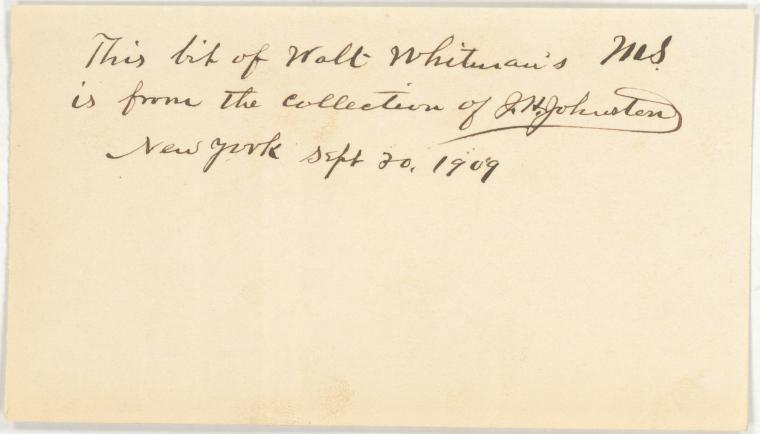 This bit of Walt Whitman's MS.
is from the collection of J.H. Johnston
New York Sept 20. 1909